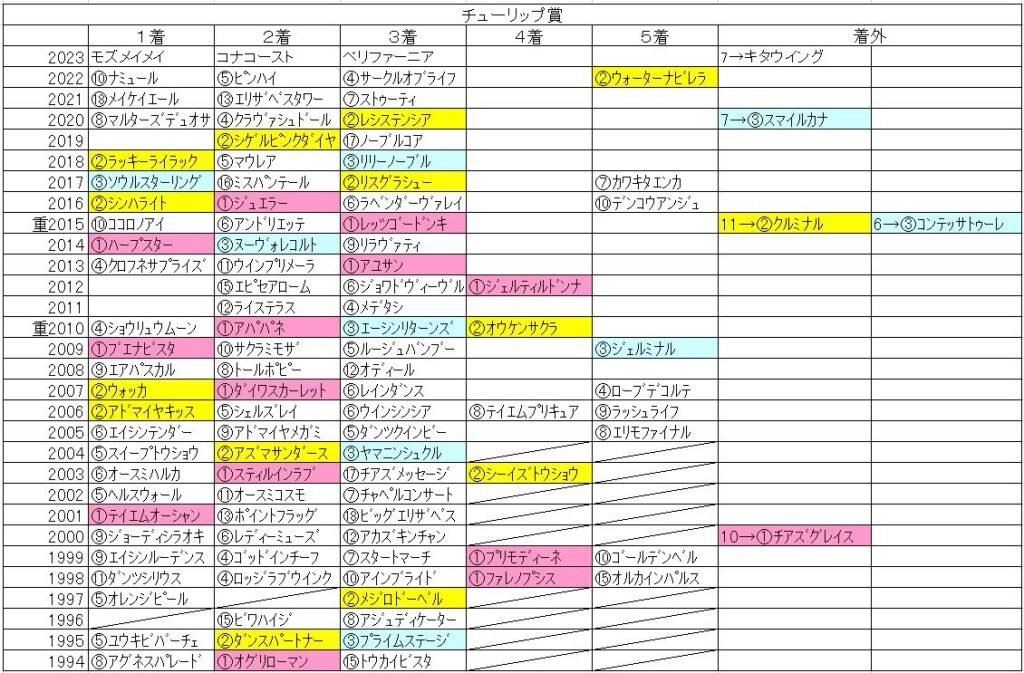 チューリップ賞
1着 2着 3着 4着 5着 着外
2023 モズメイメイ コナコースト ペリファーニア 7→キタウイング
2022 ⑩ナミュール ⑤ピンハイ ④サークルオブライフ ②ウォーターナビレラ
2021 ⑱メイケイエール ⑬エリザベスタワー ⑦ストゥーティ
2020 ⑧マルターズデュオサ ④クラヴァシュドール ②レシステンシア 7→③スマイルカナ
2019 ②シゲルピンクダイヤ ⑰ノーブルコア
2018 ②ラッキーライラック ⑤マウレア ③リリーノーブル
2017 ③ソウルスターリング ⑯ミスパンテール ②リスグラシュー ⑦カワキタエンカ
2016 ②シンハライト ①ジュエラー ⑥ラベンダーヴァレイ ⑩デンコウアンジュ
重2015 ⑩ココロノアイ ⑥アンドリエッテ ①レッツゴードンキ 11→②クルミナル 6→③コンテッサトゥーレ
2014 ①ハープスター ③ヌーヴォレコルト ⑨リラヴァティ
2013 ④クロフネサプライズ ⑪ウインプリメーラ ①アユサン
2012 ⑮エピセアローム ⑥ジョワドヴィーヴル ①ジェルティルドンナ
2011 ⑫ライステラス ④メデタシ
重2010 ④ショウリュウムーン ①アパパネ ③エーシンリターンズ ②オウケンサクラ
2009 ①ブエナビスタ ⑩サクラミモザ ⑤ルージュバンブー ③ジェルミナル
2008 ⑨エアパスカル ⑧トールポピー ⑫オディール
2007 ②ウォッカ ①ダイワスカーレット ⑥レインダンス ④ローブデコルテ
2006 ②アドマイヤキッス ⑤シェルズレイ ⑥ウインシンシア ⑧テイエムプリキュア ⑨ラッシュライフ
2005 ⑥エイシンテンダー ⑨アドマイヤメガミ ⑤ダンツクインビー ⑧エリモファイナル
2004 ⑤スイープトウショウ ②アズマサンダース ③ヤマニンシュクル
2003 ⑥オースミハルカ ①スティルインラブ ⑰チアズメッセージ ②シーイズトウショウ
2002 ⑤ヘルスウォール ⑪オースミコスモ ⑦チャペルコンサート
2001 ①テイエムオーシャン ⑬ポイントフラッグ ⑱ビッグエリザベス
2000 ⑨ジョーディシラオキ ⑥レディーミューズ ⑫アカズキンチャン 10→①チアズグレイス
1999 ⑨エイシンルーデンス ④ゴッドインチーフ ⑦スタートマーチ ①プリモディーネ ⑩ゴールデンベル
1998 ⑪ダンツシリウス ④ロッジラブウインク ⑩アインブライド ①ファレノプシス ⑮オルカインパルス
1997 ⑤オレンジピール ②メジロドーベル
1996 ⑮ビワハイジ ⑧アジュディケーター
1995 ⑤ユウキビバーチェ ②ダンスパートナー ③プライムステージ
1994 ⑧アグネスパレード ①オグリローマン ⑮トウカイビスタ